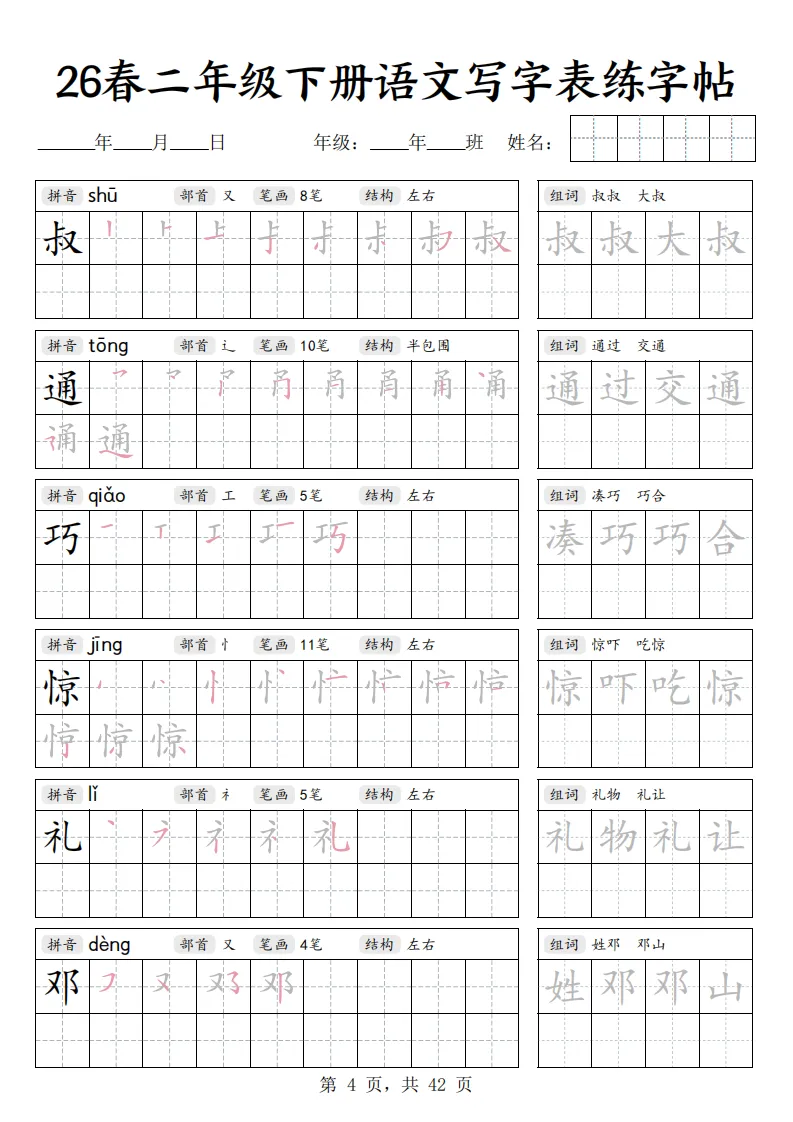 26春二年级下册语文写字表练字帖
年 月 日 年级： 年 班 姓名：
拼音 shū 部首 又 笔画 8笔 结构 左右 组词 叔叔 大叔
叔 叔 叔 叔 大 叔
拼音 tōng 部首 辶 笔画 10笔 结构 半包围 组词 通过 交通
通 通 过 交 通
通
拼音 qiǎo 部首 工 笔画 5笔 结构 左右 组词 凑巧 巧合
巧 巧 凑 巧 巧 合
拼音 jīng 部首 忄 笔画 11笔 结构 左右 组词 惊吓 吃惊
惊 惊 吓 吃 惊
惊
拼音 lǐ 部首 礻 笔画 5笔 结构 左右 组词 礼物 礼让
礼 礼 礼 物 礼 让
拼音 dèng 部首 又 笔画 4笔 结构 左右 组词 姓邓 邓山
邓 邓 姓 邓 邓 山
第 4 页，共 42 页